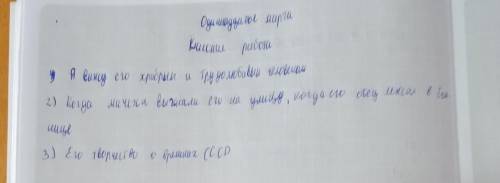 Одиннадцатое марта
Классная работа
1) Я вижу его храбрым и трудолюбивым человеком
2) Когда мачеха выгнали его на улицу, когда его отец лежал в боль
нице
3) Его творчество о временах СССР